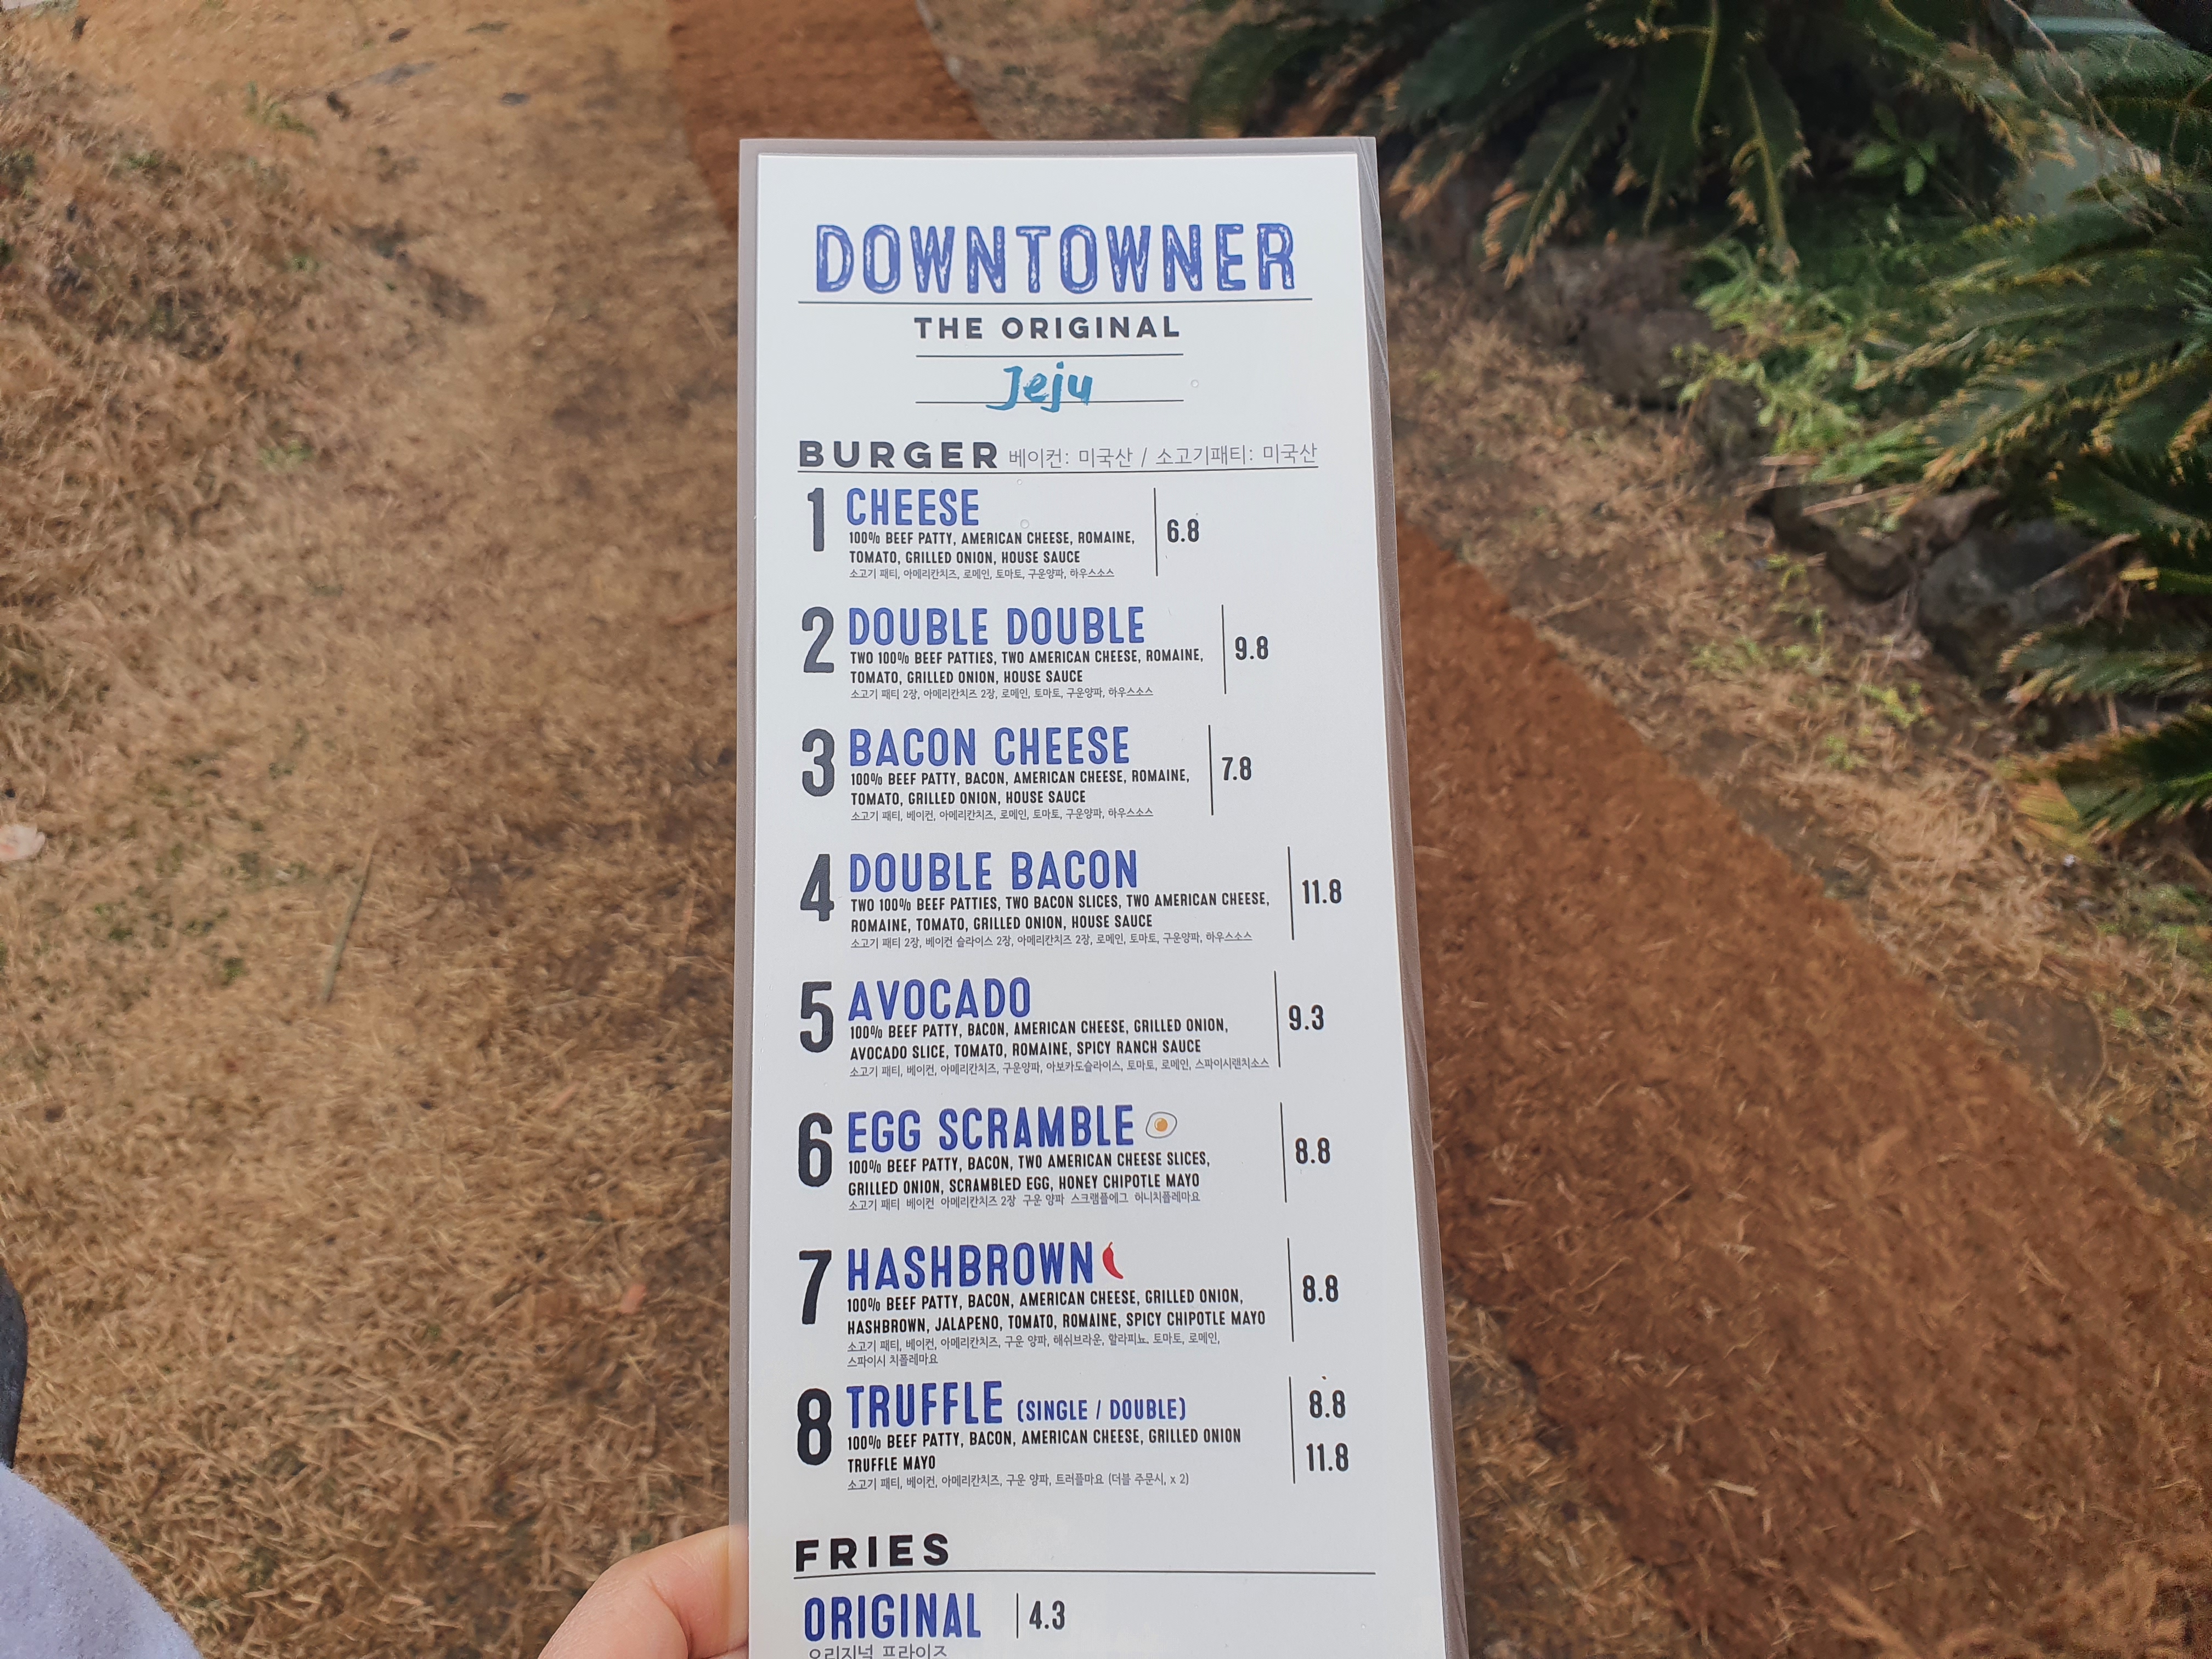 DOWNTOWNER
THE ORIGINAL
Jeju
BURGER 베이컨: 미국산 / 소고기패티: 미국산
1 CHEESE
100% BEEF PATTY, AMERICAN CHEESE, ROMAINE,
TOMATO, GRILLED ONION, HOUSE SAUCE
소고기 패티, 아메리칸치즈, 로메인, 토마토, 구운양파, 하우스소스
6.8
2 DOUBLE DOUBLE
TWO 100% BEEF PATTIES, TWO AMERICAN CHEESE, ROMAINE,
TOMATO, GRILLED ONION, HOUSE SAUCE
소고기 패티 2장, 아메리칸치즈 2장, 로메인, 토마토, 구운양파, 하우스소스
9.8
3 BACON CHEESE
100% BEEF PATTY, BACON, AMERICAN CHEESE, ROMAINE,
TOMATO, GRILLED ONION, HOUSE SAUCE
소고기 패티, 베이컨, 아메리칸치즈, 로메인, 토마토, 구운양파, 하우스소스
7.8
4 DOUBLE BACON
TWO 100% BEEF PATTIES, TWO BACON SLICES, TWO AMERICAN CHEESE,
ROMAINE, TOMATO, GRILLED ONION, HOUSE SAUCE
소고기 패티 2장, 베이컨 슬라이스 2장, 아메리칸치즈 2장, 로메인, 토마토, 구운양파, 하우스소스
11.8
5 AVOCADO
100% BEEF PATTY, BACON, AMERICAN CHEESE, GRILLED ONION,
AVOCADO SLICE, TOMATO, ROMAINE, SPICY RANCH SAUCE
소고기 패티, 베이컨, 아메리칸치즈, 구운양파, 아보카도슬라이스, 토마토, 로메인, 스파이시랜치소스
9.3
6 EGG SCRAMBLE
100% BEEF PATTY, BACON, TWO AMERICAN CHEESE SLICES,
GRILLED ONION, SCRAMBLED EGG, HONEY CHIPOTLE MAYO
소고기 패티 베이컨 아메리칸치즈 2장 구운 양파 스크램플에그 허니치플레마요
8.8
7 HASHBROWN
100% BEEF PATTY, BACON, AMERICAN CHEESE, GRILLED ONION,
HASHBROWN, JALAPENO, TOMATO, ROMAINE, SPICY CHIPOTLE MAYO
소고기 패티, 베이컨, 아메리칸치즈, 구운 양파, 해쉬브라운, 할라피뇨, 토마토, 로메인,
스파이시 치폴레마요
8.8
8 TRUFFLE (SINGLE / DOUBLE)
100% BEEF PATTY, BACON, AMERICAN CHEESE, GRILLED ONION
TRUFFLE MAYO
소고기 패티, 베이컨, 아메리칸치즈, 구운 양파, 트러플마요 (더블 주문시, x 2)
8.8
11.8
FRIES
ORIGINAL 4.3
오리지널 프라이즈